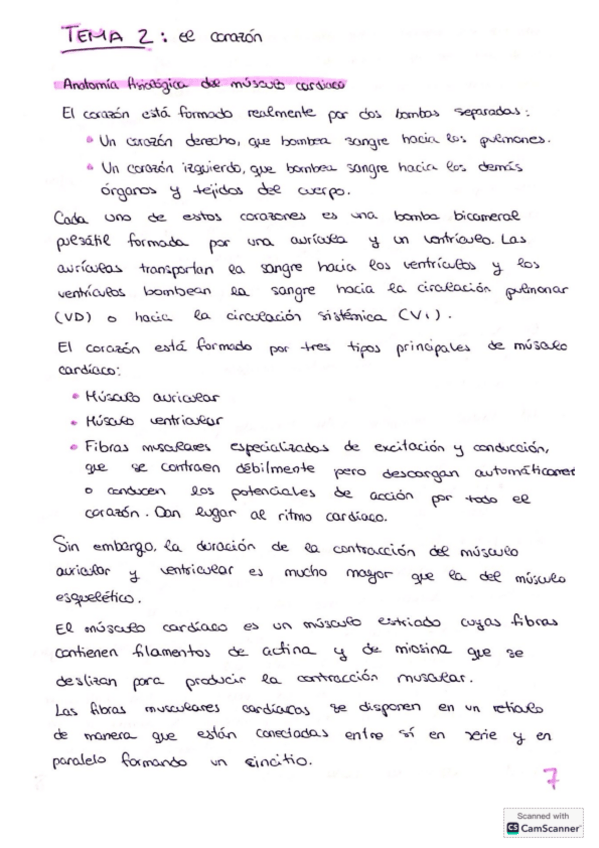 TEMA 2: el corazón
Anatomía fisiológica del músculo cardiaco
El corazón está formado realmente por dos bombas separadas:
• Un corazón derecho, que bombea sangre hacia los pulmones.
• Un corazón izquierdo, que bombea sangre hacia los demás
órganos y tejidos del cuerpo.
Cada uno de estos corazones es una bomba bicameral
pulsátil formada por una aurícula y un ventrículo. Las
aurículas transportan la sangre hacia los ventrículos y los
ventrículos bombean la sangre hacia la circulación pulmonar
(VD) o hacia la circulación sistémica (VI).
El corazón está formado por tres tipos principales de músculo
cardíaco:
• Músculo auricular
• Músculo ventricular
• Fibras musculares especializadas de excitación y conducción,
que se contraen débilmente pero descargan automáticamet
o conducen los potenciales de acción por todo el
corazón. Dan lugar al ritmo cardíaco.
Sin embargo, la duración de la contracción del músculo
auricular y ventricular es mucho mayor que la del músculo
esquelético.
El músculo cardíaco es un músculo estriado cuyas fibras
contienen filamentos de actina y de miosina que se
deslizan para producir la contracción muscular.
Las fibras musculares cardíacas se disponen en un retículo
de manera que están conectadas entre sí en serie y en
paralelo formando un sincitio.
7
Scanned with
CS CamScanner